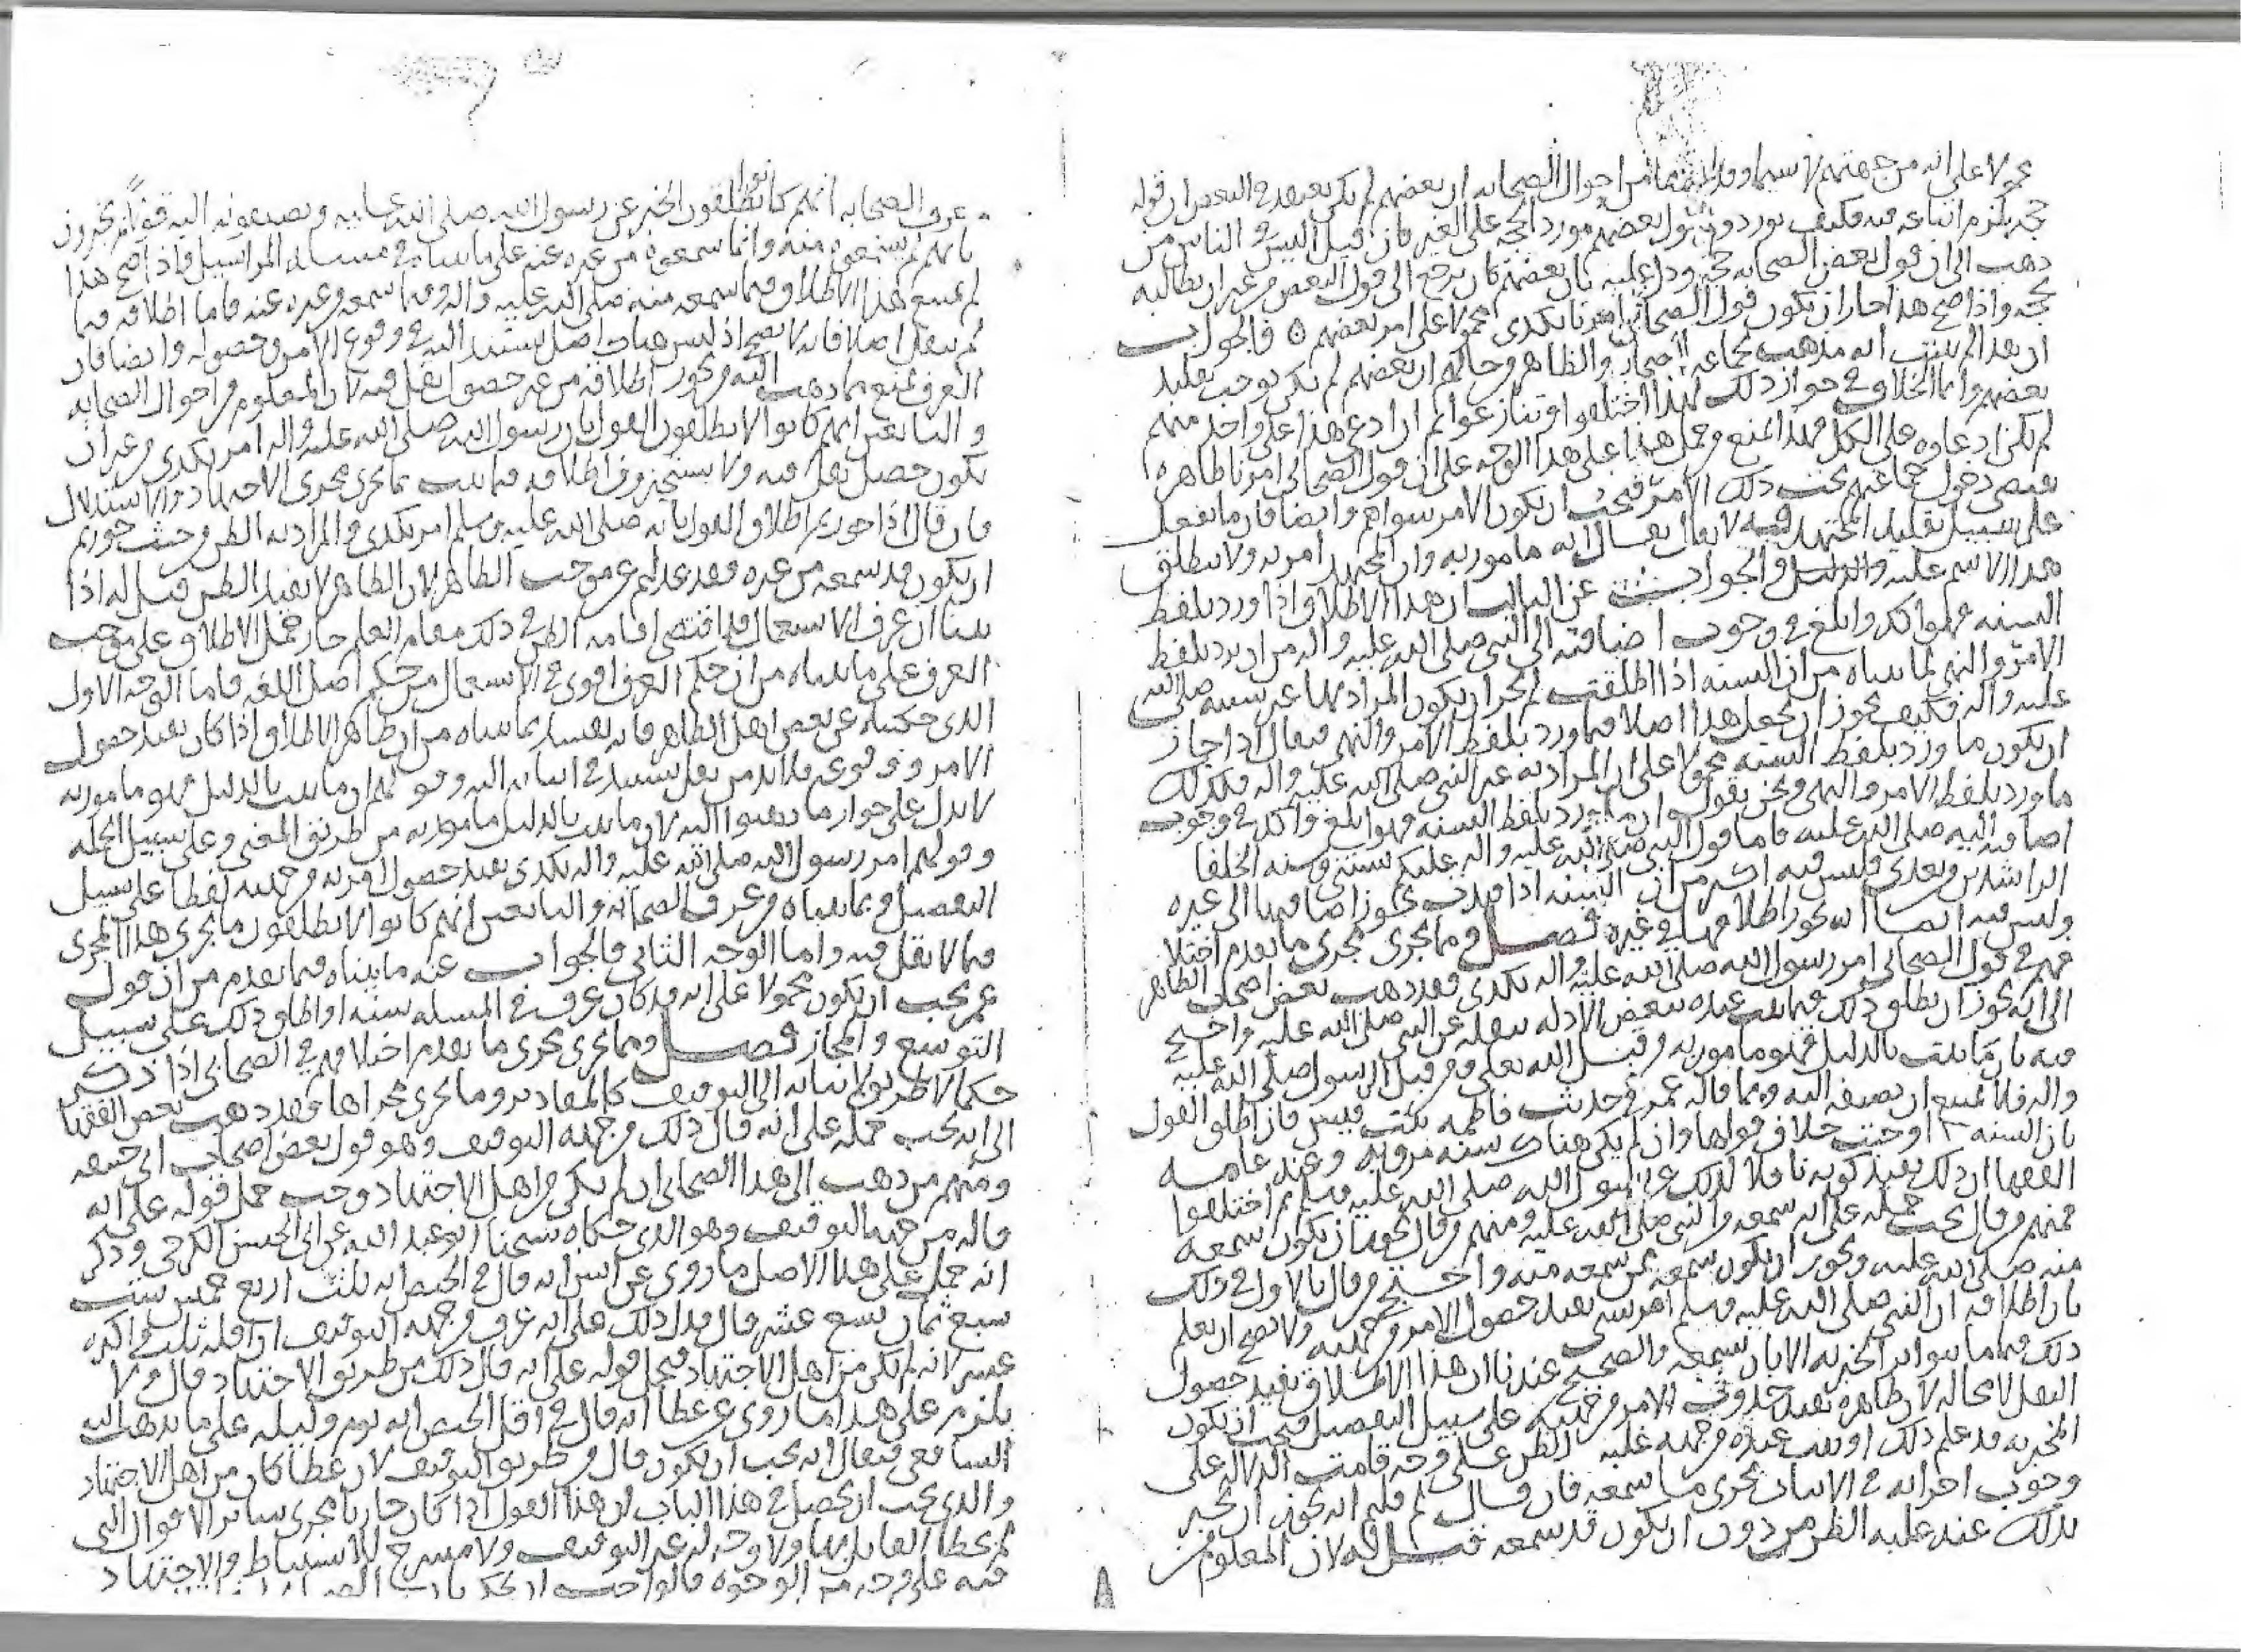 محمولا على انه من جهتهم لا سيما وقد علمنا من احوال الصحابه ان بعضهم لم يكن يعتقد في البعض ان قوله
حجه يلزم اتباعه فيه فكيف يورد قول بعضهم مورد الحجه على الغير فان قيل اليس في الناس من
ذهب الى ان قول بعض الصحابه حجه ودل عليه بان بعضهم كان يرجع الى قول البعض من غير ان يطالبه
بحجه واذا صح هذا جاز ان يكون قول الصحابي امرنا بكذى محمولا على امر بعضهم ه فالجواب
ان هذا لم يثبت انه مذهب لجماعه الصحابه والظاهر من حالهم ان بعضهم لم يكن يوجب تقليد
بعضهم وانما الخلاف في جواز ذلك لهذا اختلفوا وتنازعوا ثم ان ادعى هذا على واحد منهم
لم يكن ادعاوه على الكل فهذا يمنع من حمل هذا على هذا الوجه على ان قول الصحابي امرنا ظاهره
يقتضي دخول جماعتهم تحت ذلك الامر فيجب ان يكون الامر سواهم وايضا فان ما يفعل
على سبيل تقليد المجتهد فيه لا يقال انه مامور به وان المجتهد امر به ولا يطلق
هذا الاسم عليه والجواب عن الثالث ان هذا الاطلاق اذا ورد بلفظ
السنه فهو اكد وابلغ في وجوب اضافته الى النبي صلى الله عليه واله من ان يرد بلفظ
الامر والنهي لما بيناه من ان السنه اذا اطلقت لم يجز ان يكون المراد بها غير سنته صلى الله
عليه واله فكيف يجوز ان يجعل هذا اصلا فيما ورد بلفظ الامر والنهي فيقال اذا جاز
ان يكون ما ورد بلفظ السنه محمولا على ان المراد به غير النبي صلى الله عليه واله فكذلك
ما ورد بلفظ الامر والنهي ونحن نقول ان ما ورد بلفظ السنه فهو ابلغ واكد في وجوب
اضافته اليه صلى الله عليه فاما قول النبي صلى الله عليه واله عليكم سنتي وسنه الخلفا
الراشدين من بعدي فليس فيه اكثر من ان السنه اذا قيدت يجوز اضافتها الى غيره
وليس فيه ايضا انه يجوز اطلاقها في غيره فصل فيما يجري مجرى ما تقدم اختلا
فهم في قول الصحابي امر رسول الله صلى الله عليه واله بكذى فقد ذهب بعض اصحاب الظاهر
الى انه يجوز ان يطلق ذلك فيما ثبت عنده ببعض الادله نقله عن النبي صلى الله عليه واحتج
فيه بان ما ثبت بالدليل فهو مامور به من قبل الله تعلى ومن قبل الرسول صلى الله عليه
واله فلا يمتنع ان يضيفه اليه ومما قاله عمر في حديث فاطمه بنت قيس فان اطلق القول
بان السنه اوجبت خلاف قولها وان لم يكن هناك سنه مرويه وعند عامه
الفقها ان ذلك يفيد كونه ناقلا لذلك عن رسول الله صلى الله عليه وسلم ثم اختلفوا
فمنهم من قال يجب حمله على انه سمعه من النبي صلى الله عليه ومنهم من قال يجوز ان يكون سمعه
منه صلى الله عليه ويجوز ان يكون سمعه ممن سمعه منه واحتج من قال بالاول في ذلك
بان اطلاقه ان النبي صلى الله عليه وسلم امر بشي يفيد حصول الامر من جهته ولا يصح ان يعلم
ذلك فيما لا يتواتر الخبر به الا بان سمعه والصحيح عندنا ان هذا الاطلاق يفيد حصول
النقل لا محاله لان ظاهره يفيد حدوث الامر من جهته على سبيل التفصيل فيجب ان يكون
المخبر به قد علم ذلك او ثبت عنده من جهه غلبه الظن على وجه قامت الدلاله على
وجوب اجرائه في الاثبات مجرى ما سمعه فان قال لم قلتم انه يجوز ان يخبر
بذلك عند غلبه الظن من دون ان يكون قد سمعه قيل له لان المعلوم من
عرف الصحابه انهم كانوا يطلقون الخبر عن رسول الله صلى الله عليه ويضيفونه اليه قولا ثم يخبرون
بانهم لم يسمعوه منه وانما سمعوه من غيره عنه على ما بيناه في مساله المراسيل فاذا صح هذا
لم يمتنع هذا الاطلاق فيما سمعه منه صلى الله عليه واله وفيما سمعه من غيره عنه فاما اطلاقه فيما
لم ينقل اصلا فانه لا يصح اذ ليس هناك اصل يستند اليه في وقوع الامر وحصوله وايضا فان
العرف يمنع مما ذهب اليه من يجوز اطلاقه من غير حصول نقل فيه لان المعلوم من احوال الصحابه
والتابعين انهم كانوا لا يطلقون القول بان رسول الله صلى الله عليه واله امر بكذى من غير ان
يكون حصل نقل فيه ولا يستجيزون اطلاقه فيما ثبت بما يجري مجرى الاجتهاد والاستدلال
فان قال اذا جوزتم اطلاق القول بانه صلى الله عليه وسلم امر بكذى والمراد به الظن من حيث جوزتم
ان يكون قد سمعه من غيره فقد عدلتم عن موجب الظاهر لان الظاهر لا يفيد الظن قيل له اذا
بينا ان عرف الاستعمال قد اقتضى اقامه الظن في ذلك مقام العلم جاز حمل الاطلاق على موجب
العرف على ما بيناه من ان حكم العرف اقوى في الاستعمال من حكم اصل اللغه فاما الوجه الاول
الذي حكيناه عن بعض اهل الظاهر فانه يفسد بما بيناه من ان ظاهر الاطلاق اذا كان يفيد حصول
الامر ووقوعه فلا بد من نقل يستند في اثباته اليه وقولهم ان ما ثبت بالدليل فهو مامور به
لا يدل على جواز ما ذهبوا اليه لان ما ثبت بالدليل مامور به من طريق المعنى وعلى سبيل الجمله
وقولهم امر رسول الله صلى الله عليه واله بكذى يفيد حصول امر به من جهته لفظا على سبيل
التفصيل وبما بيناه من عرف الصحابه والتابعين انهم كانوا لا يطلقون ما يجري هذا المجرى
فيما لا نقل فيه واما الوجه الثاني فالجواب عنه ما بيناه فيما تقدم من ان قول
عمر يجب ان يكون محمولا على انه قد كان عرف في المساله سنه او اطلق ذلك على سبيل
التوسع والمجاز فصل ومما يجري مجرى ما تقدم اختلافهم في الصحابي اذا ذكر
حكما لا طريق لاثباته الى التوقيف كالمقادير وما يجري مجراها فقد ذهب بعض الفقها
الى انه يجب حمله على انه قال ذلك من جهه التوقيف وهو قول بعض اصحاب ابي حنيفه
ومنهم من ذهب الى هذا الصحابي ان لم يكن من اهل الاجتهاد وجب حمل قوله على انه
قاله من جهه التوقيف وهو الذي حكاه شيخنا ابو عبد الله عن ابي الحسن الكرخي وذكر
انه حمل على هذا الاصل ما روي عن انس انه قال في الحيض انه ثلث اربع خمس ست
سبع ثمان تسع عشر قال فدل ذلك على انه عرف من جهه التوقيف ان اقله ثلث واكثره
عشر لانه لم يكن من اهل الاجتهاد فيحمل قوله على انه قال ذلك من طريق الاجتهاد قال ولا
يلزم على هذا ما روي عن عطا انه قال في اقل الحيض انه يوم وليله على ما يذهب اليه
الشافعي فيقال انه يجب ان يكون قال من طريق التوقيف لان عطا كان من اهل الاجتهاد
والذي يجب ان يحصل في هذا الباب ان هذا القول اذا كان جاريا مجرى سائر الاقوال التي
لم يخطا القايل بها ولا وجه له غير التوقيف ولا مسرح للاستنباط والاجتهاد
فيه على وجه من الوجوه فالواجب ان